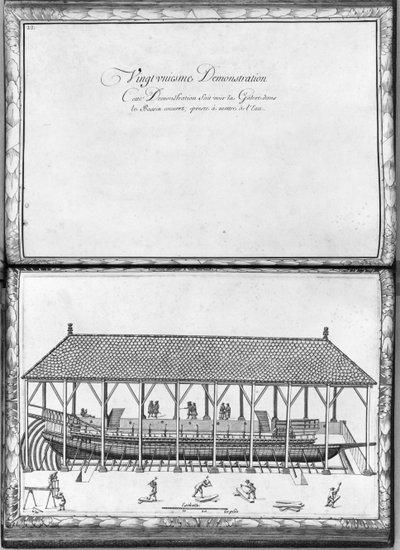 Vingt uniesme Demonstration
Cette Demonstration fait voir la Galere dans
le Bassin couvert, preste a mettre a l'Eau.